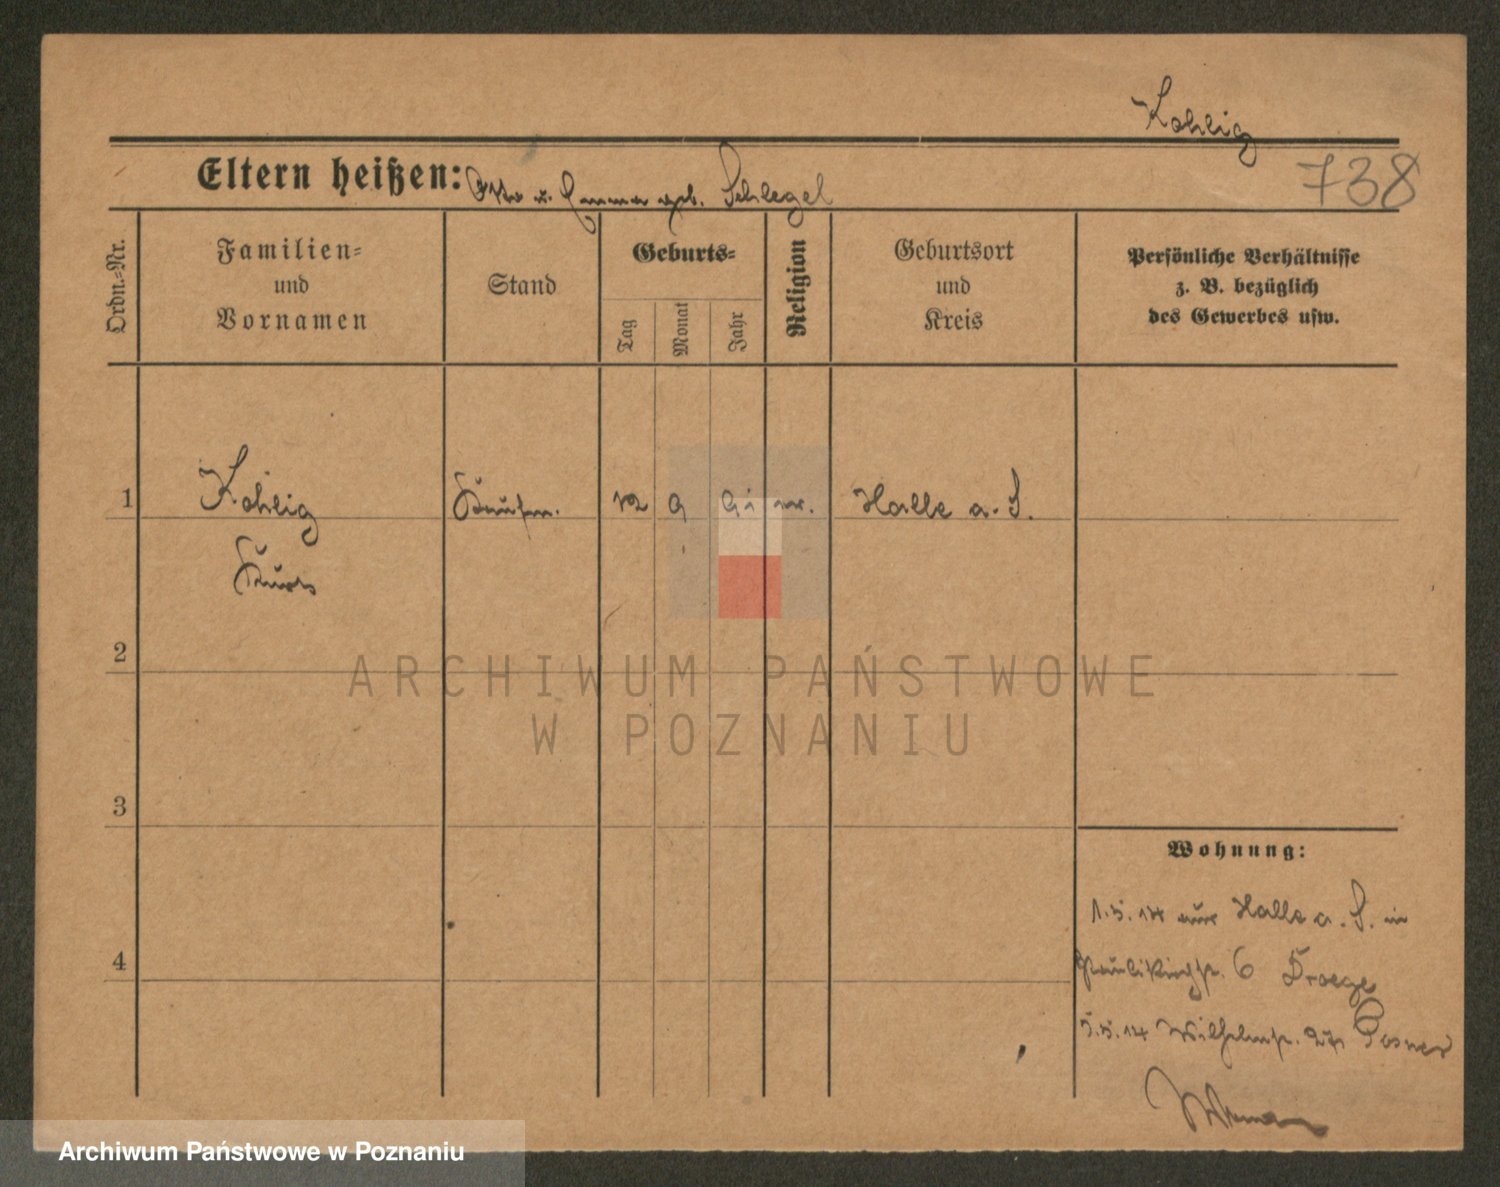 Kohlig
738
Eltern heißen: Otto u. Emma geb. Schlegel
Ordn.-Nr.
Familien-
und
Vornamen
Stand
Geburts-
Tag
Monat
Jahr
Religion
Geburtsort
und
Kreis
Persönliche Verhältnisse
z. B. bezüglich
des Gewerbes usw.
1 Kohlig Kaufm. 12 9 91 ev. Halle a. S.
Kurt
2
3
4
Wohnung:
1.5.14 aus Halle a. S. in
Paulikirchstr. 6 Droege
5.5.14 Wilhelmstr. Posner
ARCHIWUM PAŃSTWOWE
W POZNANIU
Archiwum Państwowe w Poznaniu